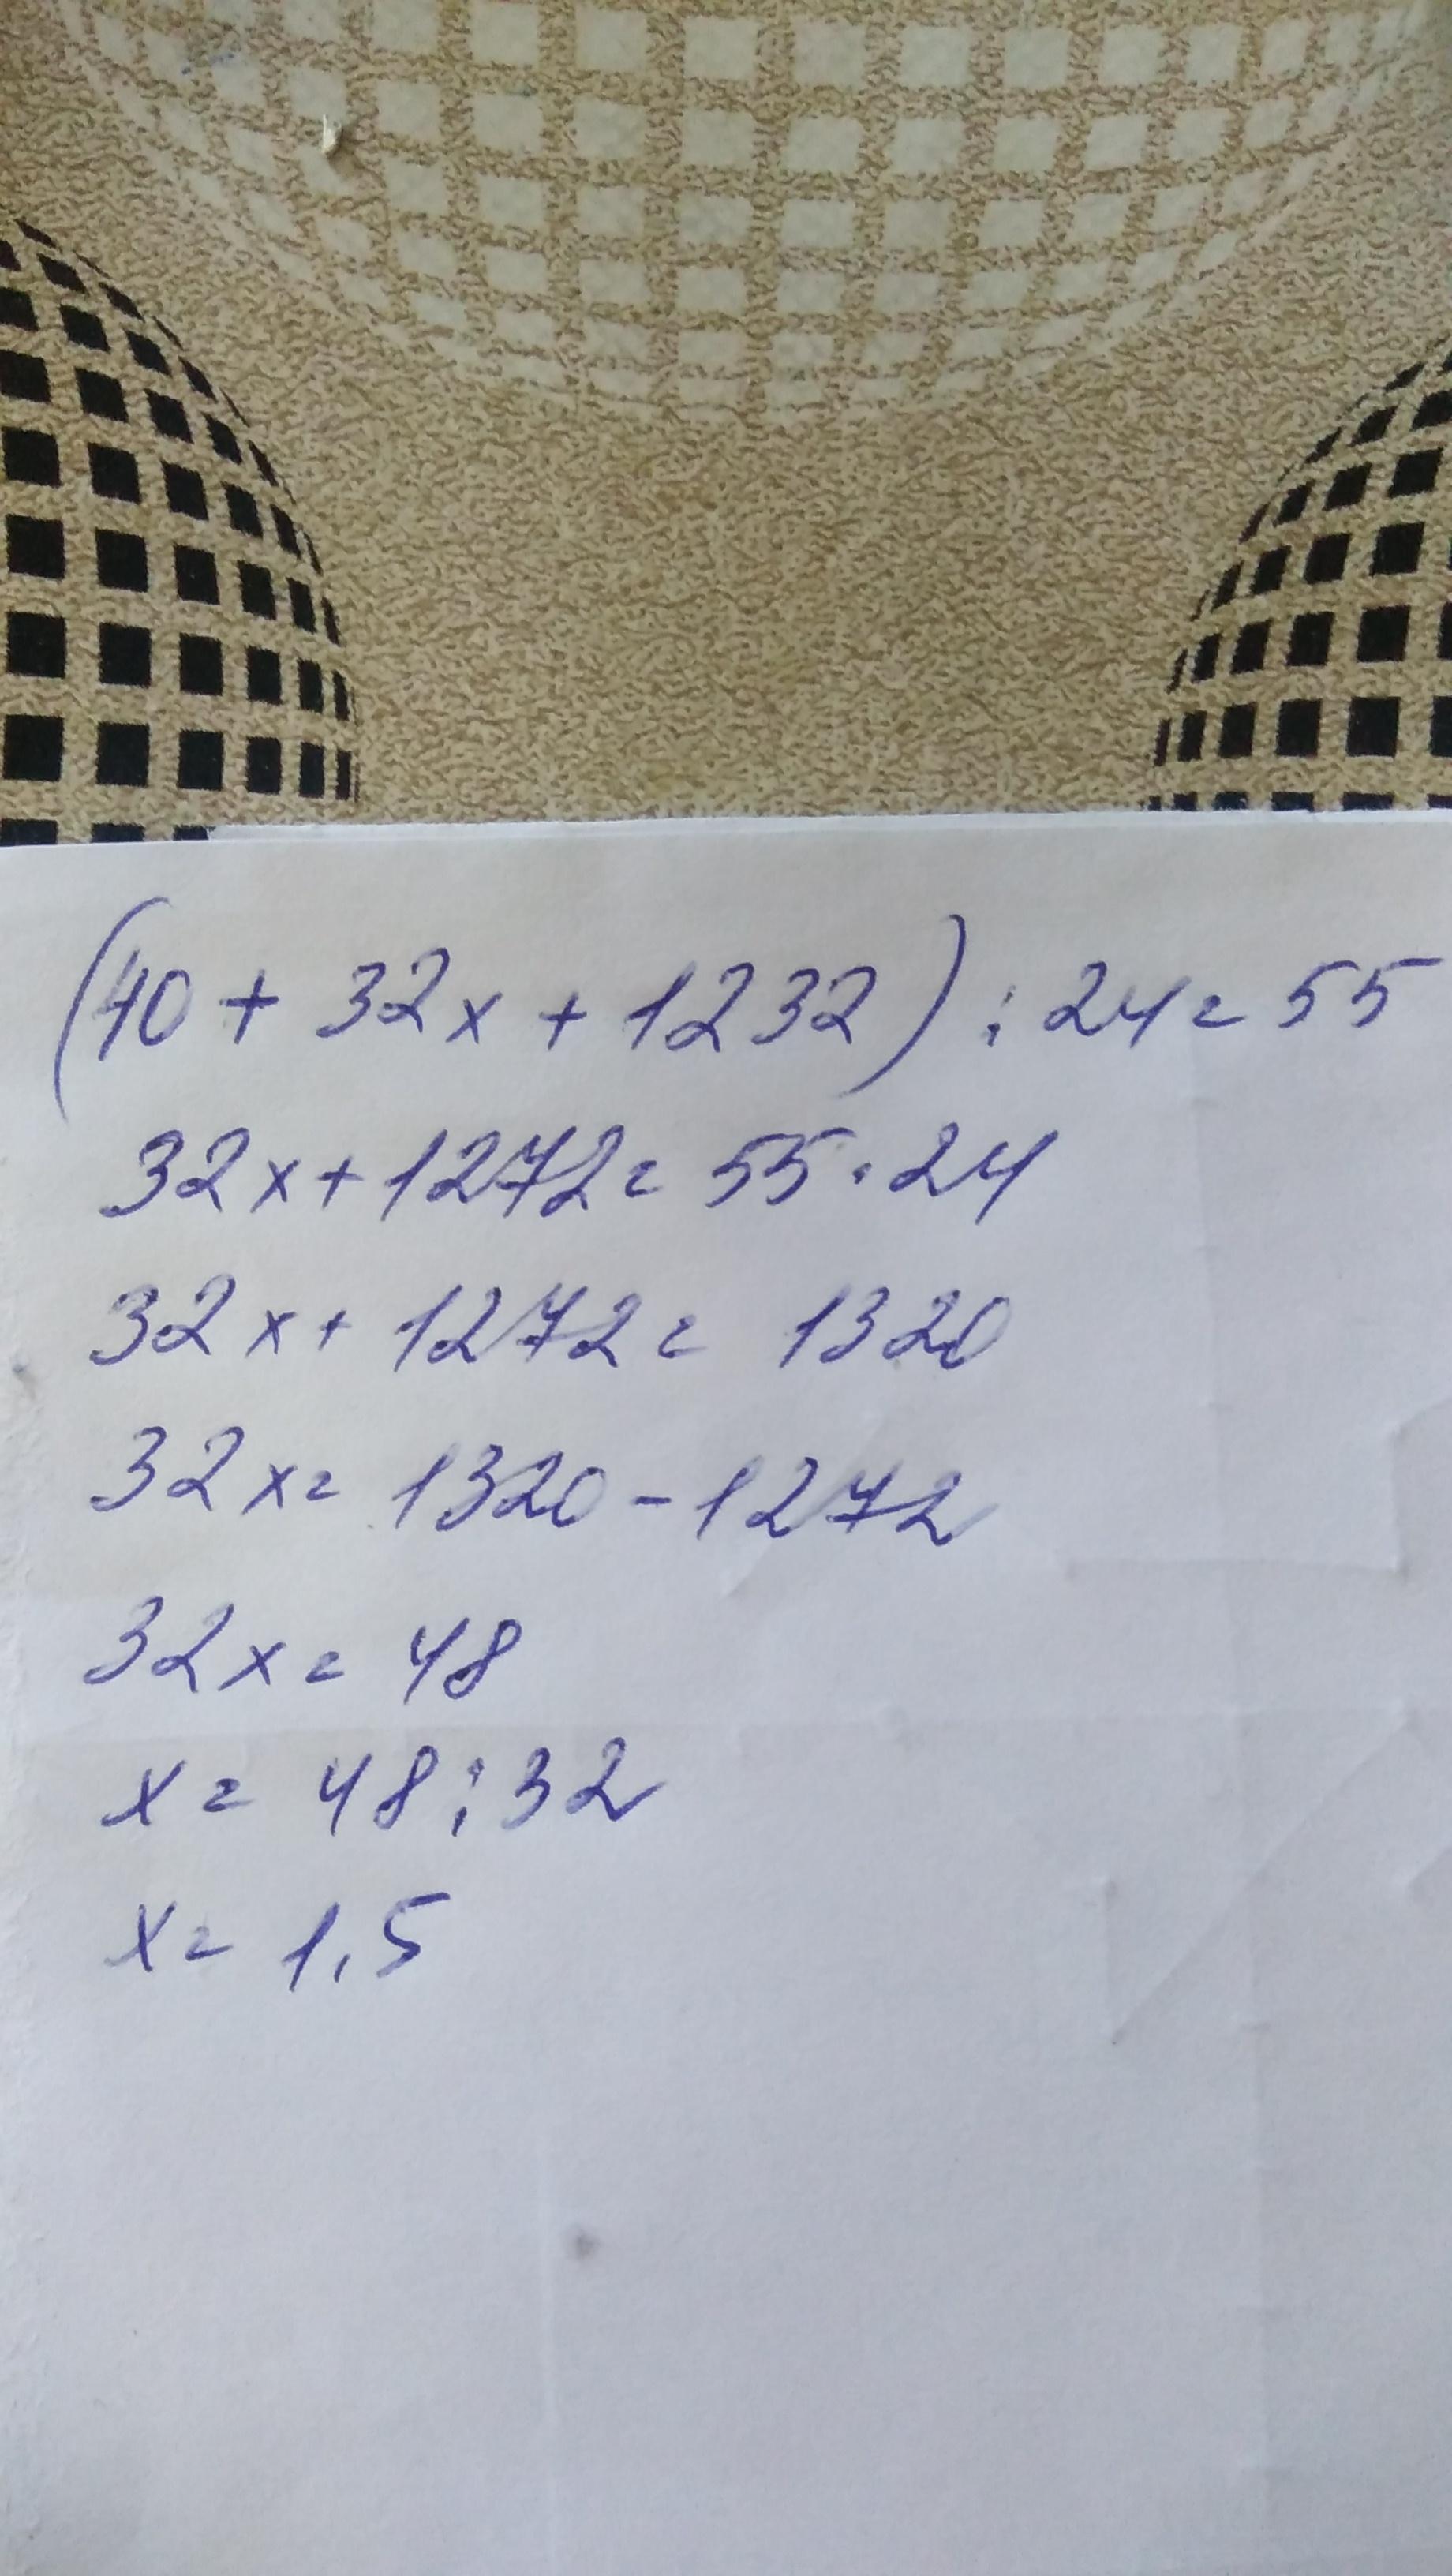 (40 + 32x + 1232) : 24 = 55
32x + 1272 = 55 · 24
32x + 1272 = 1320
32x = 1320 - 1272
32x = 48
x = 48 : 32
x = 1,5